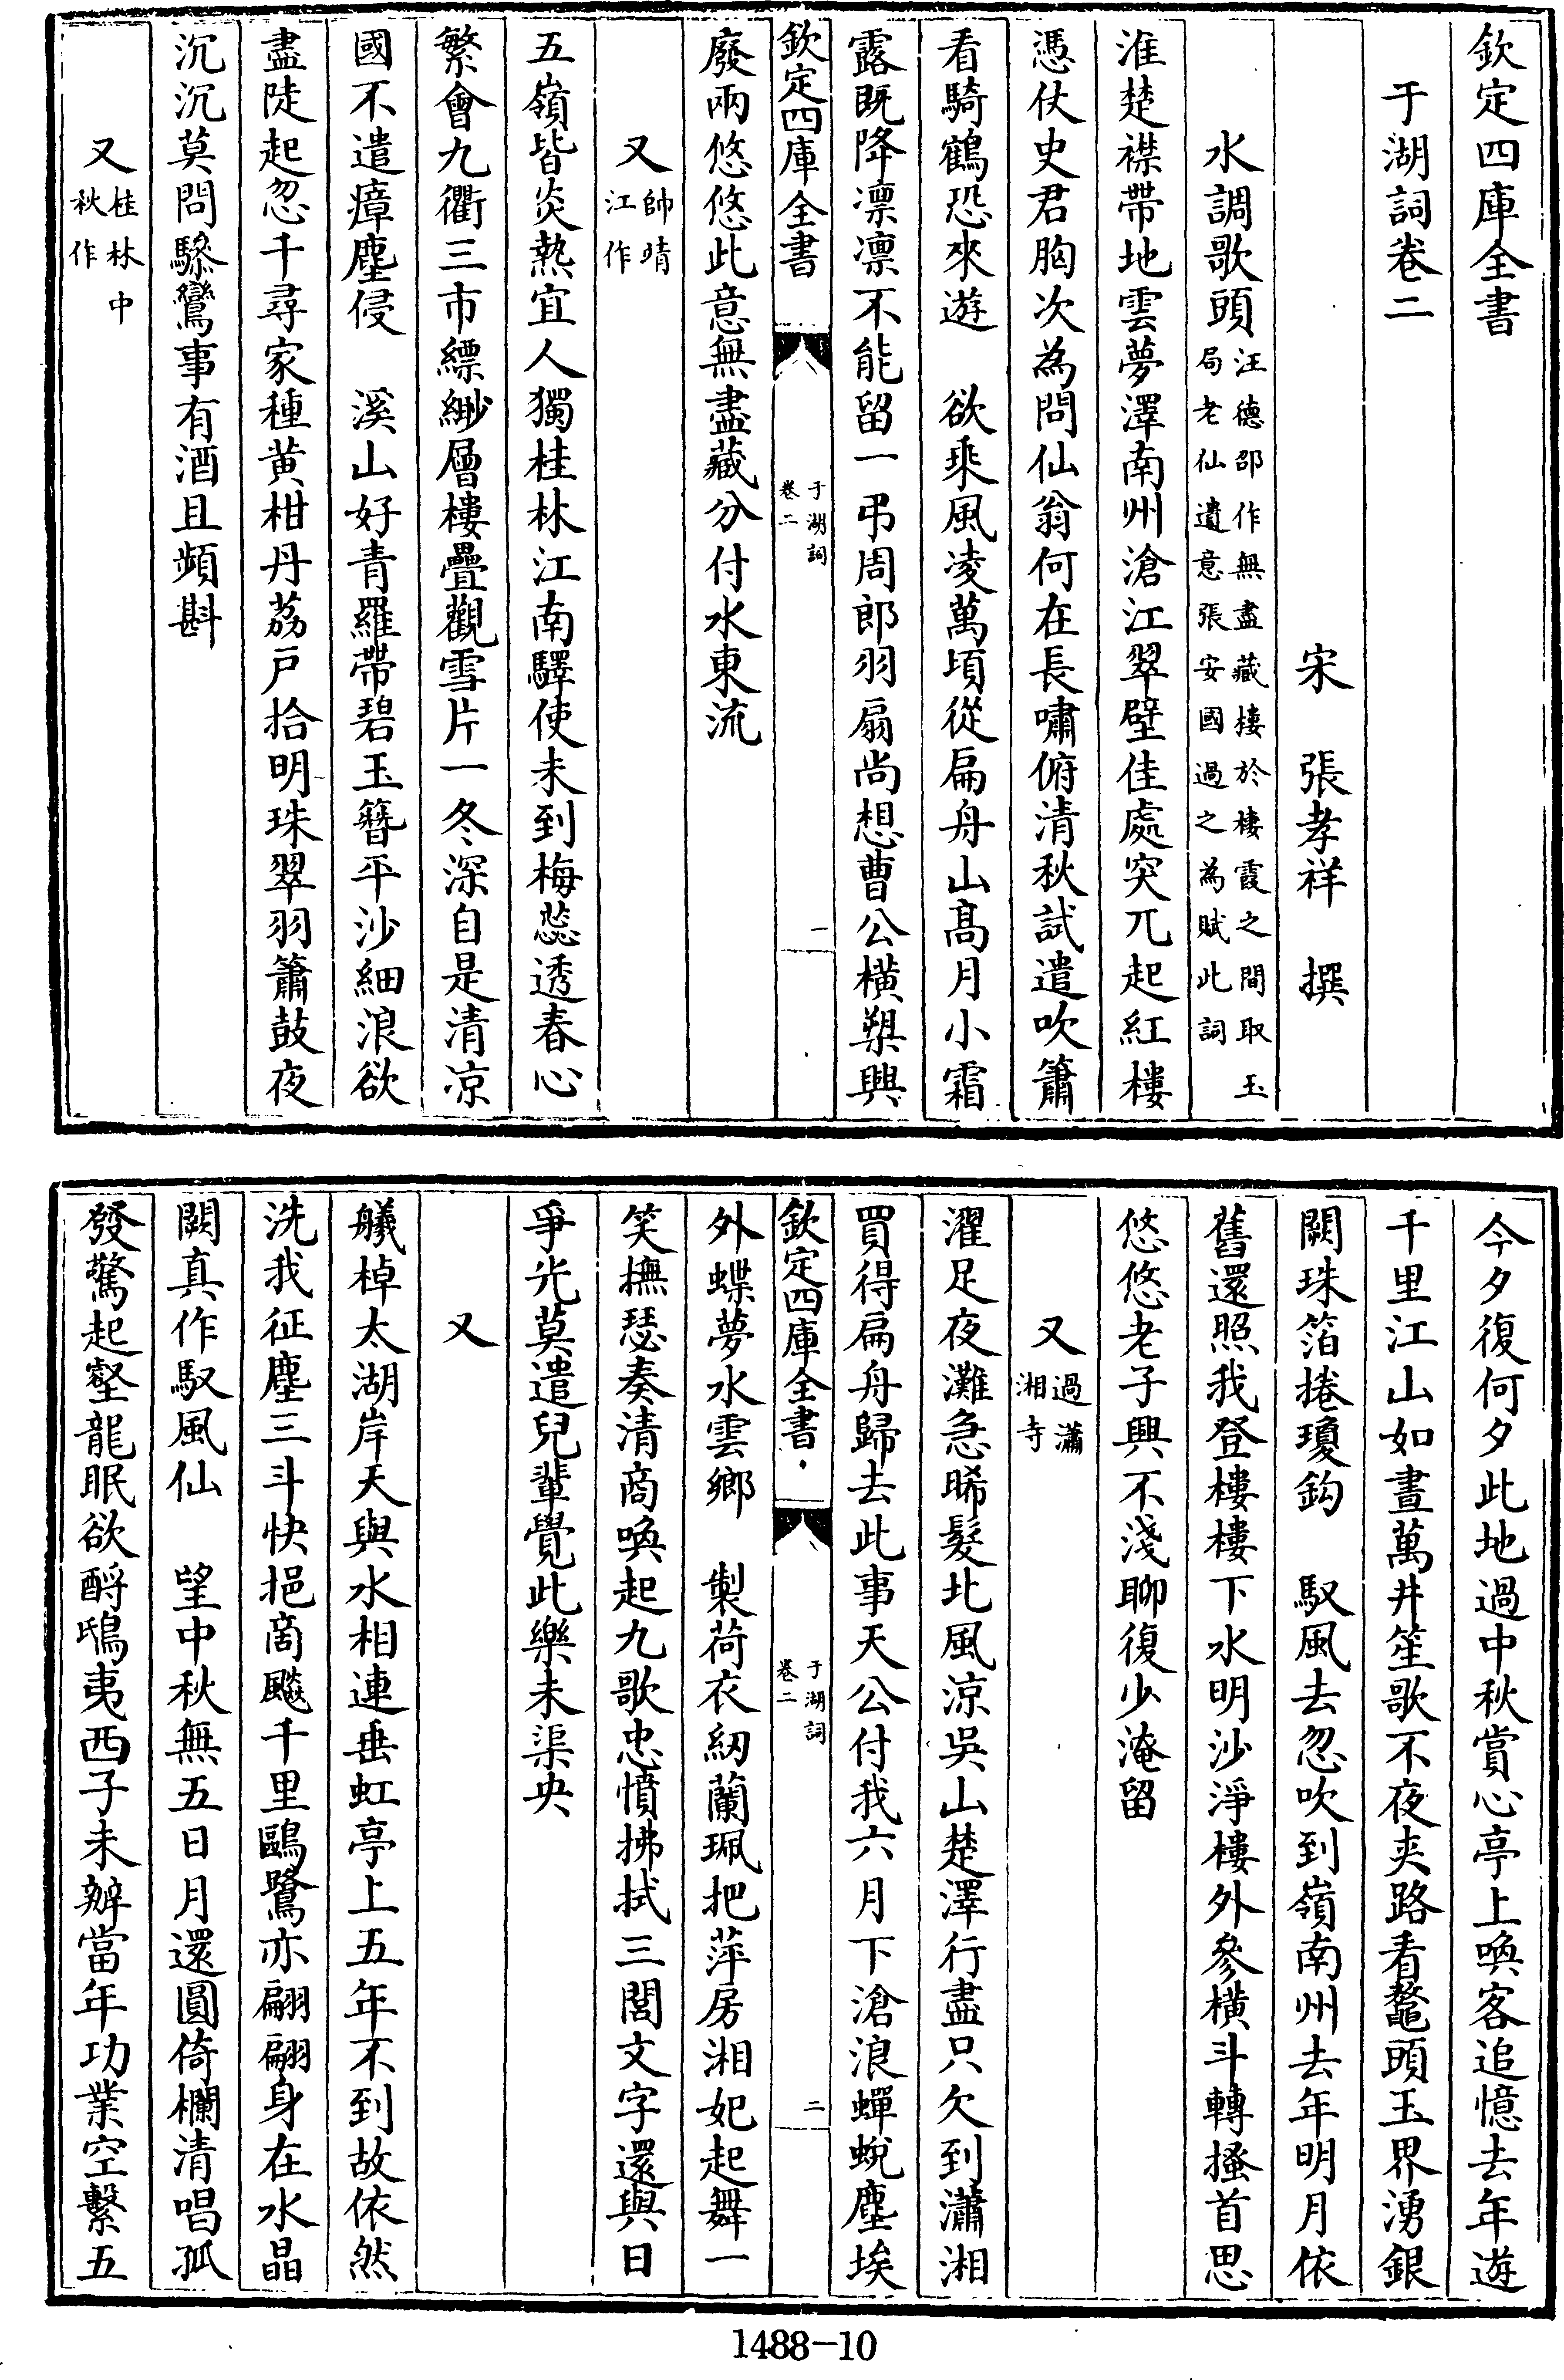 欽定四庫全書
于湖詞卷二
宋　張孝祥　撰
水調歌頭汪德邵作無盡藏樓於棲霞之間取玉局老仙遺意張安國過之為賦此詞
淮楚襟帶地雲夢澤南州滄江翠壁佳處突兀起紅樓
憑仗史君胸次為問仙翁何在長嘯俯清秋試遣吹簫
看騎鶴恐來遊　欲乘風凌萬頃從扁舟山高月小霜
露既降凛凛不能留一弔周郎羽扇尚想曹公橫槊興
欽定四庫全書　于湖詞卷二　一
廢兩悠悠此意無盡藏分付水東流
又帥靖江作
五嶺皆炎熱宜人獨桂林江南驛使未到梅蕊透春心
繁會九衢三市縹緲層樓疊觀雪片一冬深自是清凉
國不遣瘴塵侵　溪山好青羅帶碧玉簪平沙細浪欲
盡陡起忽千尋家種黄柑丹荔戶拾明珠翠羽簫鼓夜
沉沉莫問驂鸞事有酒且頻斟
又桂林中秋作
今夕復何夕此地過中秋賞心亭上喚客追憶去年遊
千里江山如晝萬井笙歌不夜夾路看鼇頭玉界湧銀
闕珠箔捲瓊鈎　馭風去忽吹到嶺南州去年明月依
舊還照我登樓樓下水明沙淨樓外參橫斗轉搔首思
悠悠老子興不淺聊復少淹留
又過瀟湘寺
濯足夜灘急晞髮北風涼吳山楚澤行盡只欠到瀟湘
買得扁舟歸去此事天公付我六月下滄浪蟬蛻塵埃
欽定四庫全書　于湖詞卷二　二
外蝶夢水雲鄉　製荷衣紉蘭珮把萍房湘妃起舞一
笑撫瑟奏清商喚起九歌忠憤拂拭三閭文字還與日
爭光莫遣兒輩覺此樂未渠央
又
艤棹太湖岸天與水相連垂虹亭上五年不到故依然
洗我征塵三斗快挹商飈千里鷗鷺亦翩翩身在水晶
闕真作馭風仙　望中秋無五日月還圓倚欄清唱孤
發驚起壑龍眠欲酹鴟夷西子未辦當年功業空繫五
1488-10